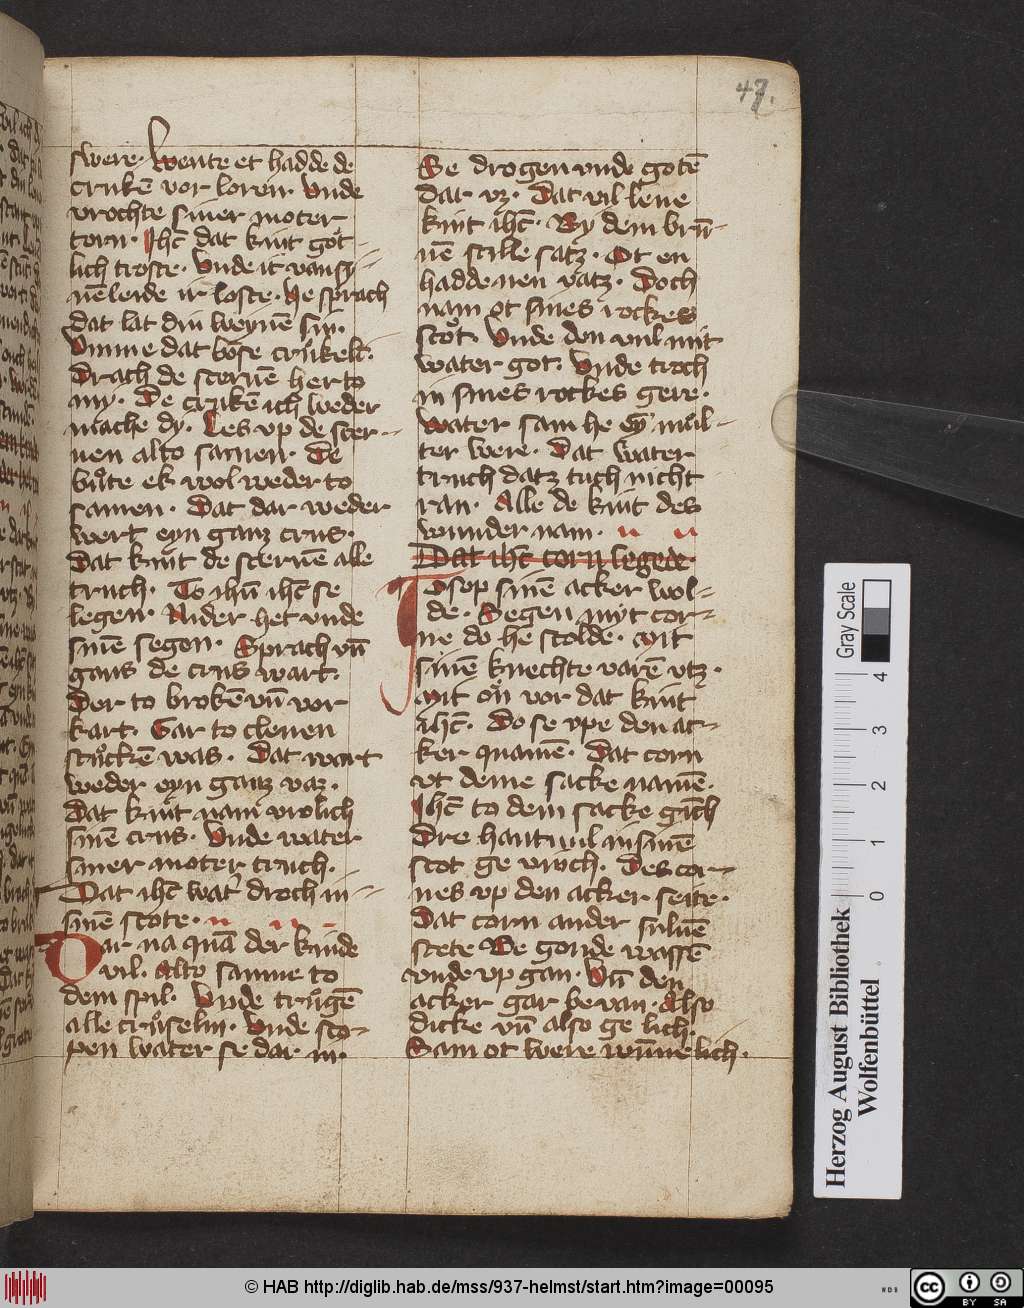 47.
swere. Wente et hadde de
crukē vor loren. Unde
vrochte siner moter
torn. Ihc̄ dat kint got-
lich troste. Unde it van sy-
nē leide ir loste. He sprach
dat lat din weynē sin.
Umme dat bose crukelī.
Drach de scervē her to
my. De crukē ich weder
mache dy. Les up de scer-
ven alto samen. De
bute ek wol weder to
samen. Dat dar weder
wert eyn ganz crus.
Dat kint de scervē alle
truch. To ihū ihc̄ se
legen. Nider het unde
sinē segen. Sprach uñ
gans de crus wart.
Der to brokē uñ vor
kart. Gar to clenen
stuckē was. Dat wart
weder eyn ganz vaz.
Dat kint nam vrolich
sinē crus. Unde water
siner moter truch.
Dat ihc̄ wat' droch in-
sinē scote.
Dar na quā der kinde
vil. Alto samne to
dem spil. Unde trugē
alle cruselin. Unde sco-
pen water se dar in.
Se drogen unde gotē
dat uz. Dat vil leve
kint ihc̄. By dem brū-
nē stille satz. Ot en
hadde nen vatz. Doch
nam ot sines rockes
scot. Unde den vul mit
water got. Unde troch
in sines rockes gere.
Water sam he eȳ mul-
ter were. Dat water
truch datz tuch nicht
ran. Alle de kint des
wunder nam.
Dat ihc̄ corn segede.
Josep sinē acker wol-
de. Segen myt cor-
ne do he scolde. Mit
sinē knechte varē utz.
Mit on vor dat kint
ihc̄. Do se uppe den ac-
ker quamē. Dat corn
ut deme sacke namē.
Ihc̄ to dem sacke ginch
Dre hant vul in sinē
scot ge vinch. Des cor-
nes up den acker seite.
Dat corn ander sulvē
stete Be gonde wassē
unde up gan. Uñ den
acker gar be van. Also
dicke uñ also ge lich.
Sam ot were wūnnelich.
Herzog August Bibliothek
Wolfenbüttel
Gray Scale
0 1 2 3 4
© HAB http://diglib.hab.de/mss/937-helmst/start.htm?image=00095
WDB
cc
BY SA